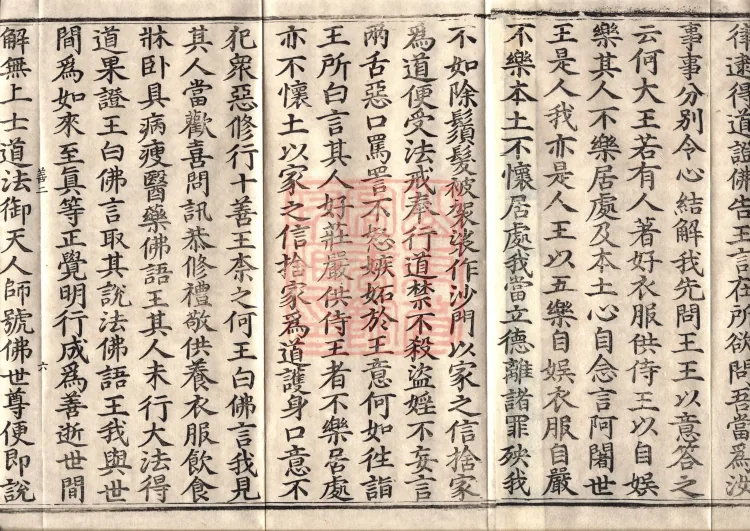 律逮得道證佛告王言在所欲問吾當爲汝
事事分別令心結解我先問王王以意答之
云何大王若有人著好衣服供侍王以自娱
樂其人不樂居處及本土心自念言阿闍世
王是人我亦是人王以五樂自娱衣服自嚴
不樂本土不懷居處我當立德離諸罪殃我
不如除鬚髮被袈裟作沙門以家之信捨家
爲道便受法戒奉行道禁不殺盜婬不妄言
兩舌惡口罵詈不恕嫉妬於王意何如往詣
王所白言其人好莊嚴供侍王者不樂居處
亦不懷土以家之信捨家爲道護身口意不
犯衆惡修行十善王柰之何王白佛言我見
其人當歡喜問訊恭修禮敬供養衣服飲食
牀卧具病瘦醫藥佛語王其人未行大法得
道果證王白佛言取其說法佛語王我與世
間爲如來至真等正覺明行成爲善逝世間
善二 六
解無上士道法御天人師號佛世尊便即說